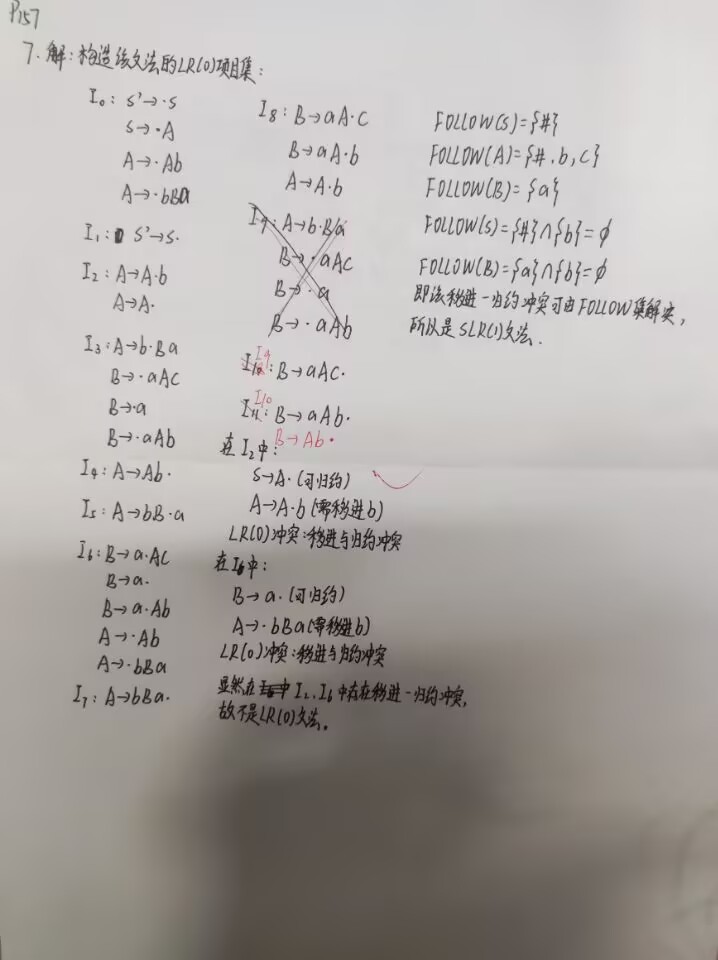 P157
7. 解：构造该文法的LR(0)项目集：
I₀: S'→·S
S→·A
A→·Ab
A→·bBa
I₁: S'→S·
I₂: A→A·b
A→A·
I₃: A→b·Ba
B→·aAC
B→·a
B→·aAb
I₄: A→Ab·
I₅: A→bB·a
I₆: B→a·AC
B→a·
B→a·Ab
A→·Ab
A→·bBa
I₇: A→bBa·
I₈: B→aA·C
B→aA·b
A→A·b
I₉: A→b·Ba
B→·aAC
B→·a
B→·aAb
I₉: B→aAC·
I₁₀: B→aAb·
B→Ab·
在I₂中：
S→A·(可归约)
A→A·b(需移进b)
LR(0)冲突：移进与归约冲突
在I₆中：
B→a·(可归约)
A→·bBa(需移进b)
LR(0)冲突：移进与归约冲突
显然在I₂、I₆中存在移进-归约冲突，
故不是LR(0)文法。
FOLLOW(S)={#}
FOLLOW(A)={#,b,c}
FOLLOW(B)={a}
FOLLOW(S)={#}∩{b}=φ
FOLLOW(B)={a}∩{b}=φ
即该移进-归约冲突可由FOLLOW集解决，
所以是SLR(1)文法.